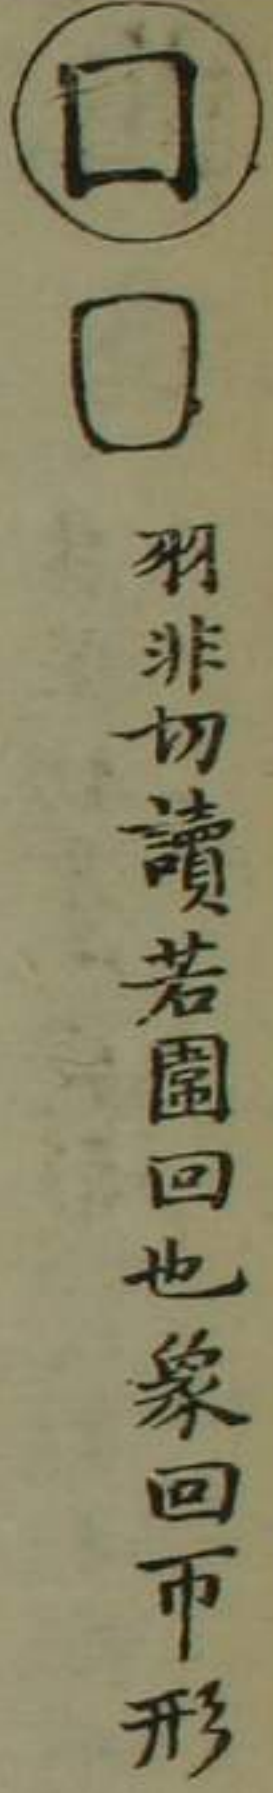 囗
囗
羽非切讀若圍回也象回帀形